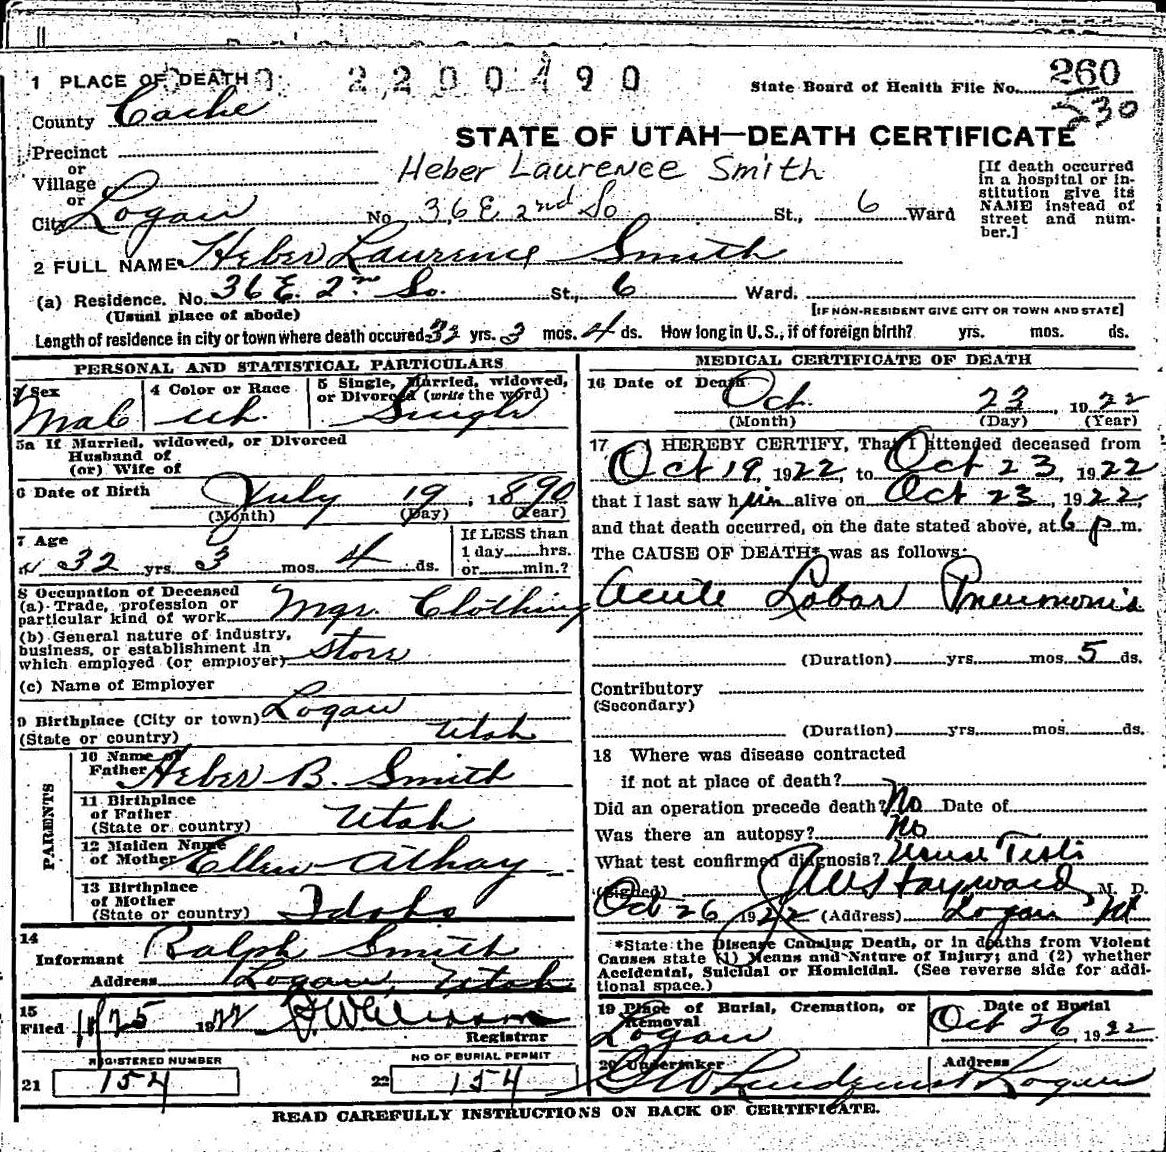 1 PLACE OF DEATH
2200490
State Board of Health File No. 260
230
County Cache
STATE OF UTAH—DEATH CERTIFICATE
Precinct
or
Village
Heber Laurence Smith
[If death occurred in a hospital or institution give its NAME instead of street and number.]
or
City Logan No 36 E 2nd So St., 6 Ward
2 FULL NAME Heber Laurence Smith
(a) Residence. No. 36 E. 2nd So. St., 6 Ward.
(Usual place of abode)
[IF NON-RESIDENT GIVE CITY OR TOWN AND STATE]
Length of residence in city or town where death occured 32 yrs. 3 mos. 4 ds. How long in U.S., if of foreign birth? yrs. mos. ds.
PERSONAL AND STATISTICAL PARTICULARS
3 Sex
Male
4 Color or Race
Wh.
5 Single, Married, widowed, or Divorced (write the word)
Single
5a If Married, widowed, or Divorced
Husband of
(or) Wife of
6 Date of Birth July 19, 1890
(Month) (Day) (Year)
7 Age
32 yrs. 3 mos. 4 ds.
If LESS than
1 day hrs.
or min.?
8 Occupation of Deceased
(a) Trade, profession or
particular kind of work Mgr. Clothing
(b) General nature of industry,
business, or establishment in
which employed (or employer) Store
(c) Name of Employer
9 Birthplace (City or town) Logan
(State or country) Utah
PARENTS
10 Name of
Father Heber B. Smith
11 Birthplace
of Father
(State or country) Utah
12 Maiden Name
of Mother Ellen Athay
13 Birthplace
of Mother
(State or country) Idaho
14
Informant Ralph Smith
Address Logan, Utah
15
Filed 10/25 1922
Registrar
REGISTERED NUMBER
21 154
NO OF BURIAL PERMIT
22 154
MEDICAL CERTIFICATE OF DEATH
16 Date of Death Oct. 23, 1922
(Month) (Day) (Year)
17 I HEREBY CERTIFY, That I attended deceased from
Oct 19 1922, to Oct 23, 1922
that I last saw him alive on Oct 23, 1922,
and that death occurred, on the date stated above, at 6 p m.
The CAUSE OF DEATH* was as follows:
Acute Lobar Pneumonia
(Duration) yrs. mos. 5 ds.
Contributory
(Secondary)
(Duration) yrs. mos. ds.
18 Where was disease contracted
if not at place of death?
Did an operation precede death? No Date of
Was there an autopsy? No
What test confirmed diagnosis? Usual Tests
(Signed) Hayward M. D.
Oct 26, 1922 (Address) Logan Ut
*State the Disease Causing Death, or in deaths from Violent
Causes state (1) Means and Nature of Injury; and (2) whether
Accidental, Suicidal or Homicidal. (See reverse side for additional space.)
19 Place of Burial, Cremation, or
Removal
Logan
Date of Burial
Oct 26, 1922
20 Undertaker
Lindquist
Address
Logan
READ CAREFULLY INSTRUCTIONS ON BACK OF CERTIFICATE.